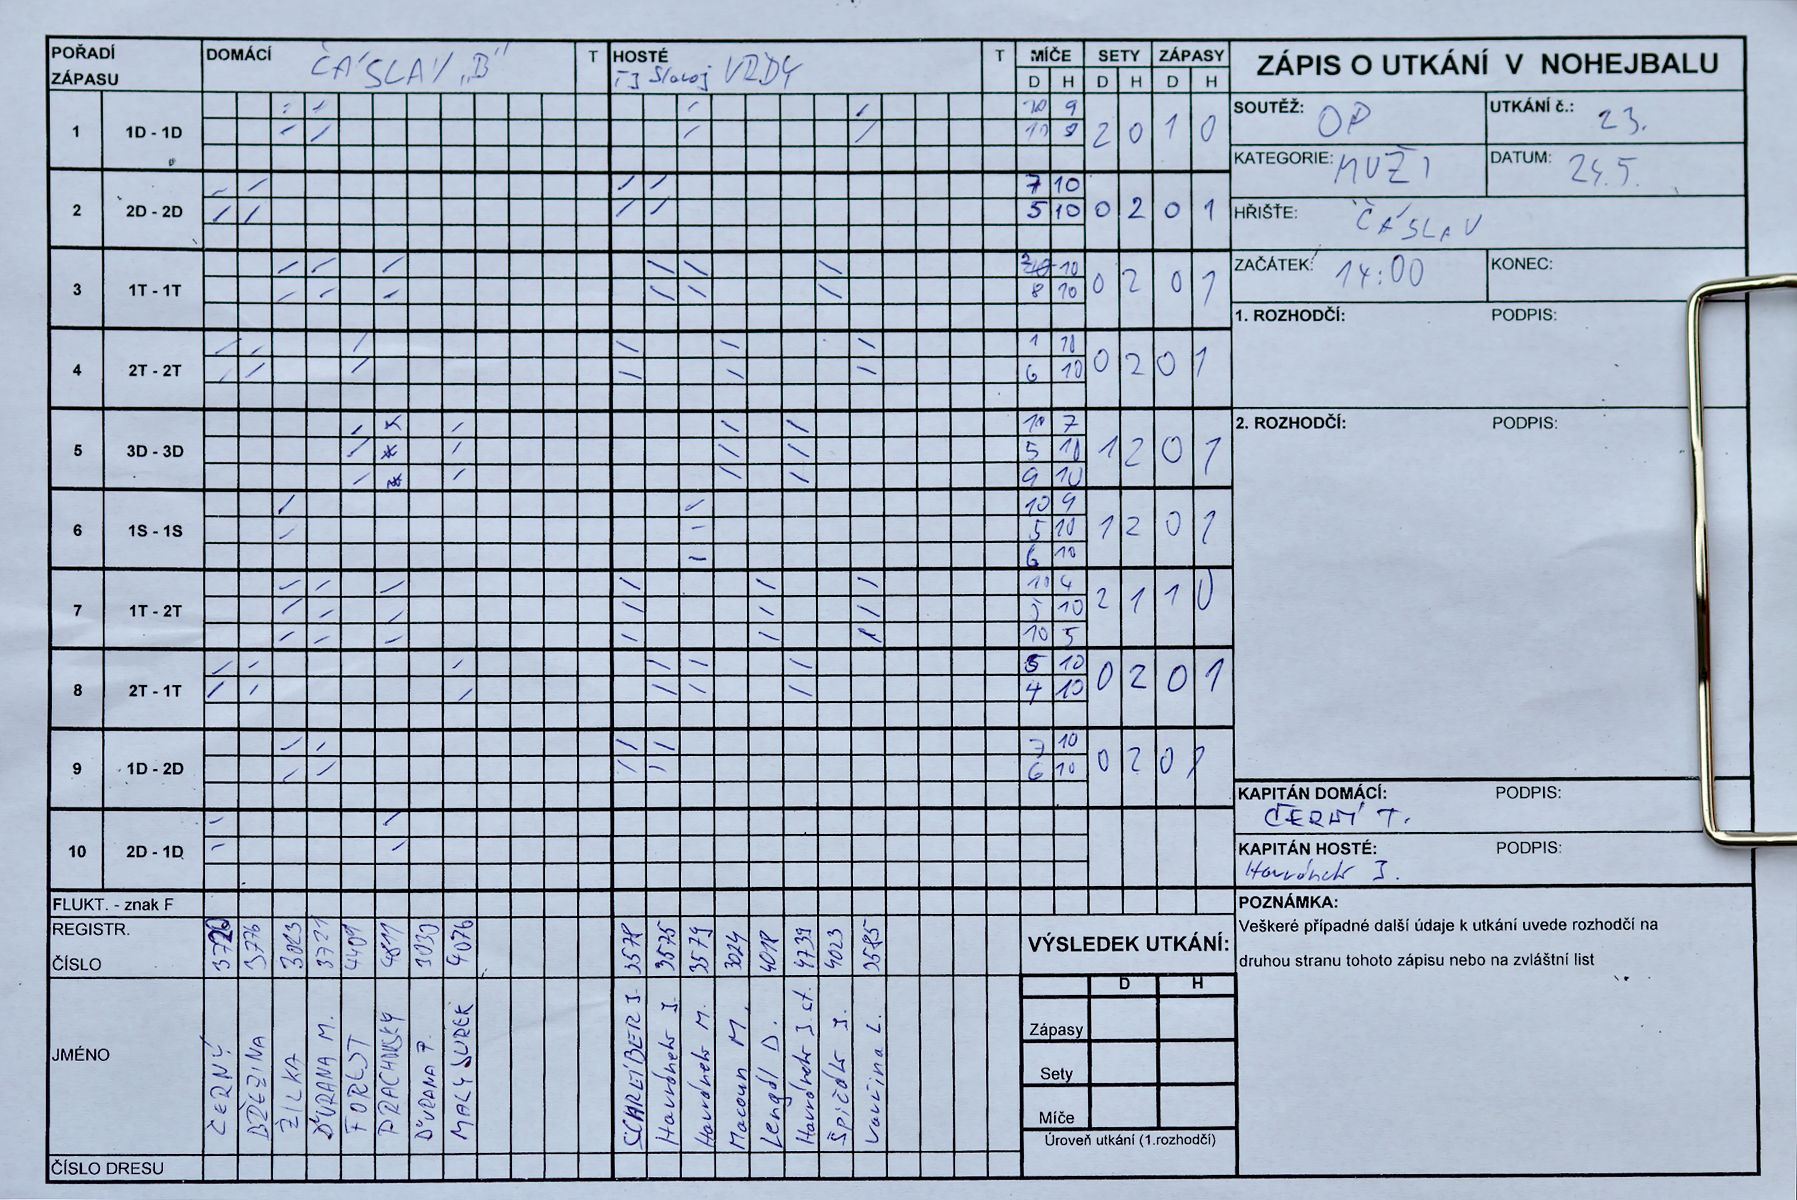 POŘADÍ ZÁPASU DOMÁCÍ ČÁSLAV „B" T HOSTÉ TJ Slavoj VRDY T MÍČE SETY ZÁPASY
D H D H D H
1 1D - 1D 10 9 2 0 1 0
10 8
2 2D - 2D 7 10 0 2 0 1
5 10
3 1T - 1T 10 0 2 0 1
8 10
4 2T - 2T 1 10 0 2 0 1
6 10
5 3D - 3D 10 7 1 2 0 1
5 10
9 10
6 1S - 1S 10 9 1 2 0 1
5 10
6 10
7 1T - 2T 10 4 2 1 1 0
5 10
10 5
8 2T - 1T 5 10 0 2 0 1
4 10
9 1D - 2D 7 10 0 2 0 1
6 10
10 2D - 1D
FLUKT. - znak F
REGISTR. ČÍSLO 3720 3776 3823 3721 4409 4811 3030 4076 3578 3575 3579 3024 4018 4739 4023 3585
JMÉNO ČERNÝ BŘEZINA ŽILKA ĎURANA M. FOREJT PRACHENSKÝ ĎURANA P. MALÝ JUREK SCHREIBER J. Havránek J. Havránek M. Macoun M. Lengál D. Havránek J. st. Špičák J. Vavřina L.
ČÍSLO DRESU
ZÁPIS O UTKÁNÍ V NOHEJBALU
SOUTĚŽ: OP UTKÁNÍ č.: 23.
KATEGORIE: MUŽI DATUM: 24.5.
HŘIŠTE: ČÁSLAV
ZAČÁTEK: 14:00 KONEC:
1. ROZHODČÍ: PODPIS:
2. ROZHODČÍ: PODPIS:
KAPITÁN DOMÁCÍ: PODPIS:
ČERNÝ T.
KAPITÁN HOSTÉ: PODPIS:
Havránek J.
POZNÁMKA:
Veškeré případné další údaje k utkání uvede rozhodčí na
druhou stranu tohoto zápisu nebo na zvláštní list
VÝSLEDEK UTKÁNÍ:
D H
Zápasy
Sety
Míče
Úroveň utkání (1.rozhodčí)